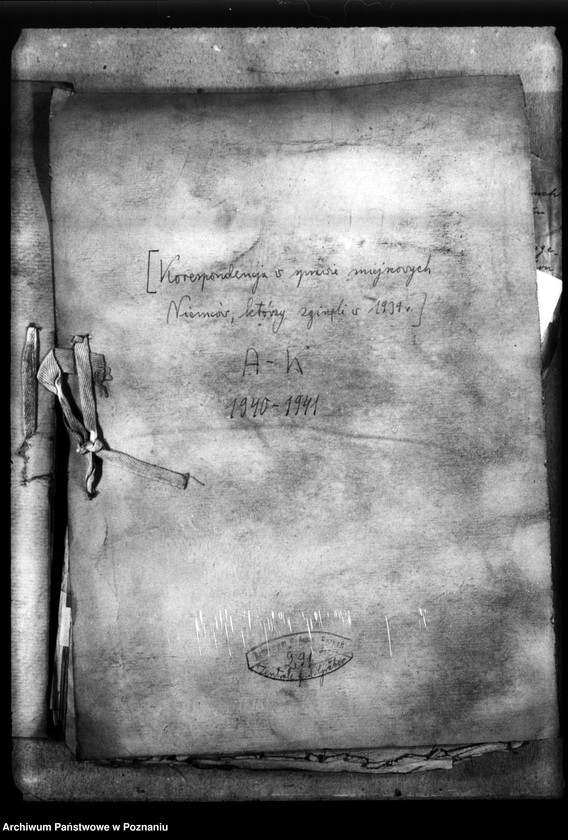 [Korespondencja w sprawie miejscowych
Niemców, którzy zginęli w 1939 r.]
A-K
1940-1941
991
Archiwum Państwowe w Poznaniu